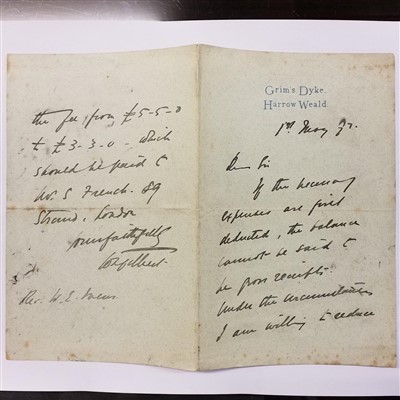 Grim's Dyke.
Harrow Weald.
1st May 92.
Dear Sir
If the necessary
expenses are first
deducted, the balance
cannot be said to
be gross receipts.
Under the circumstances
I am willing to reduce
the fee from £5-5-0
to £3-3-0 - which
should be paid to
Mr. S French. 89
Strand, London
Yours faithfully
WSGilbert.
Rev. W. E.